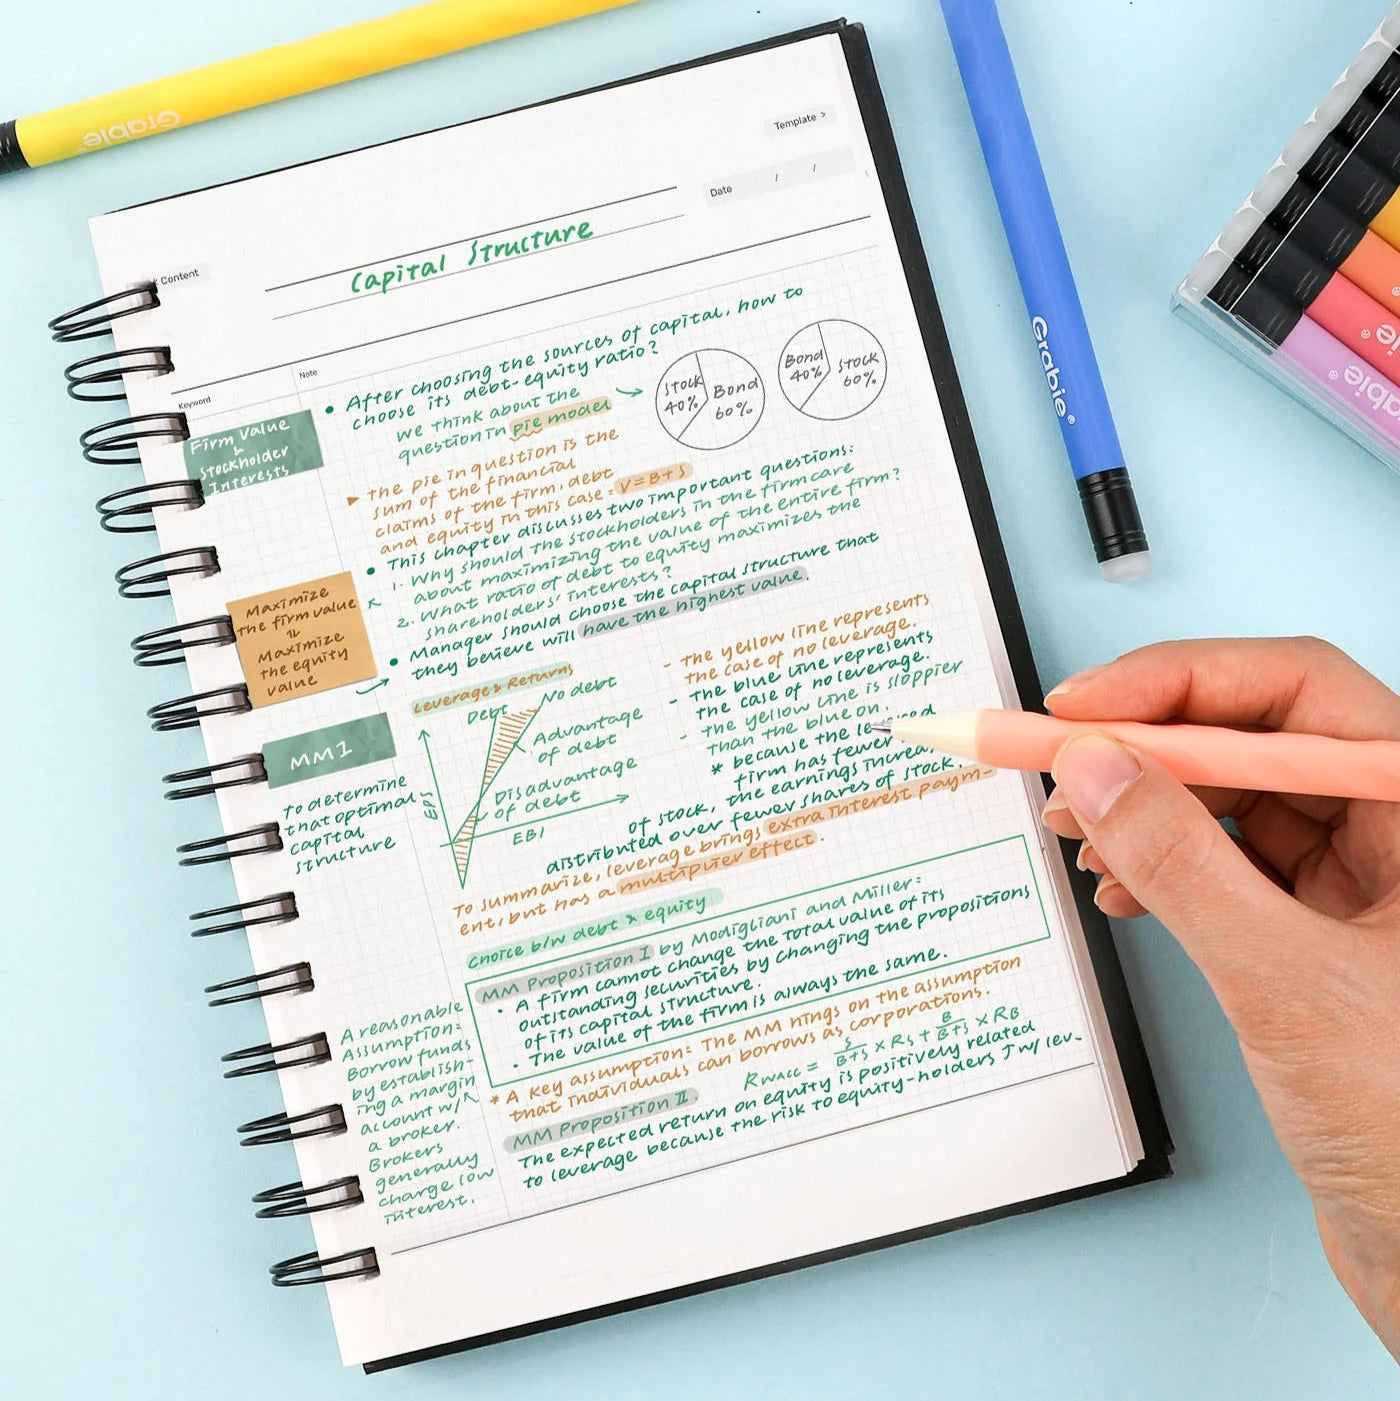 Grabie®
Template >
Date / /
Content
Capital Structure
Keyword
Note
Firm Value
&
Stockholder
Interests
• After choosing the sources of capital, how to
choose its debt-equity ratio?
we think about the
question in pie model
Stock
40%
Bond
60%
Bond
40%
Stock
60%
▸ the pie in question is the
sum of the financial
claims of the firm, debt
and equity in this case: V=B+S
• This chapter discusses two important questions:
1. Why should the stockholders in the firm care
about maximizing the value of the entire firm?
2. What ratio of debt to equity maximizes the
shareholders' interests?
• Manager should choose the capital structure that
they believe will have the highest value.
Maximize
the firm value
Maximize
the equity
value
Leverage & Returns
Debt
No debt
Advantage
of debt
Disadvantage
of debt
EPS
EBI
- the yellow line represents
the case of no leverage.
- the blue line represents
the case of no leverage.
- the yellow line is sloppier
than the blue on.
* because the
firm has fewer
of stock, the earnings
distributed over fewer shares of stock.
To summarize, leverage brings extra interest paym-
ent, but has a multiplier effect.
MM1
to determine
that optimal
capital
structure
choice b/w debt & equity
MM Proposition I by Modigliani and Miller:
• A firm cannot change the total value of its
outstanding securities by changing the propositions
of its capital structure.
• The value of the firm is always the same.
* A key assumption: The MM hings on the assumption
that individuals can borrows as corporations.
A reasonable
Assumption:
Borrow funds
by establish-
ing a margin
account w/
a broker.
Brokers
generally
charge low
interest.
MM Proposition II.
RWACC = S/B+S × RS + B/B+S × RB
The expected return on equity is positively related
to leverage because the risk to equity-holders ↑ w/ lev.
Grabie®